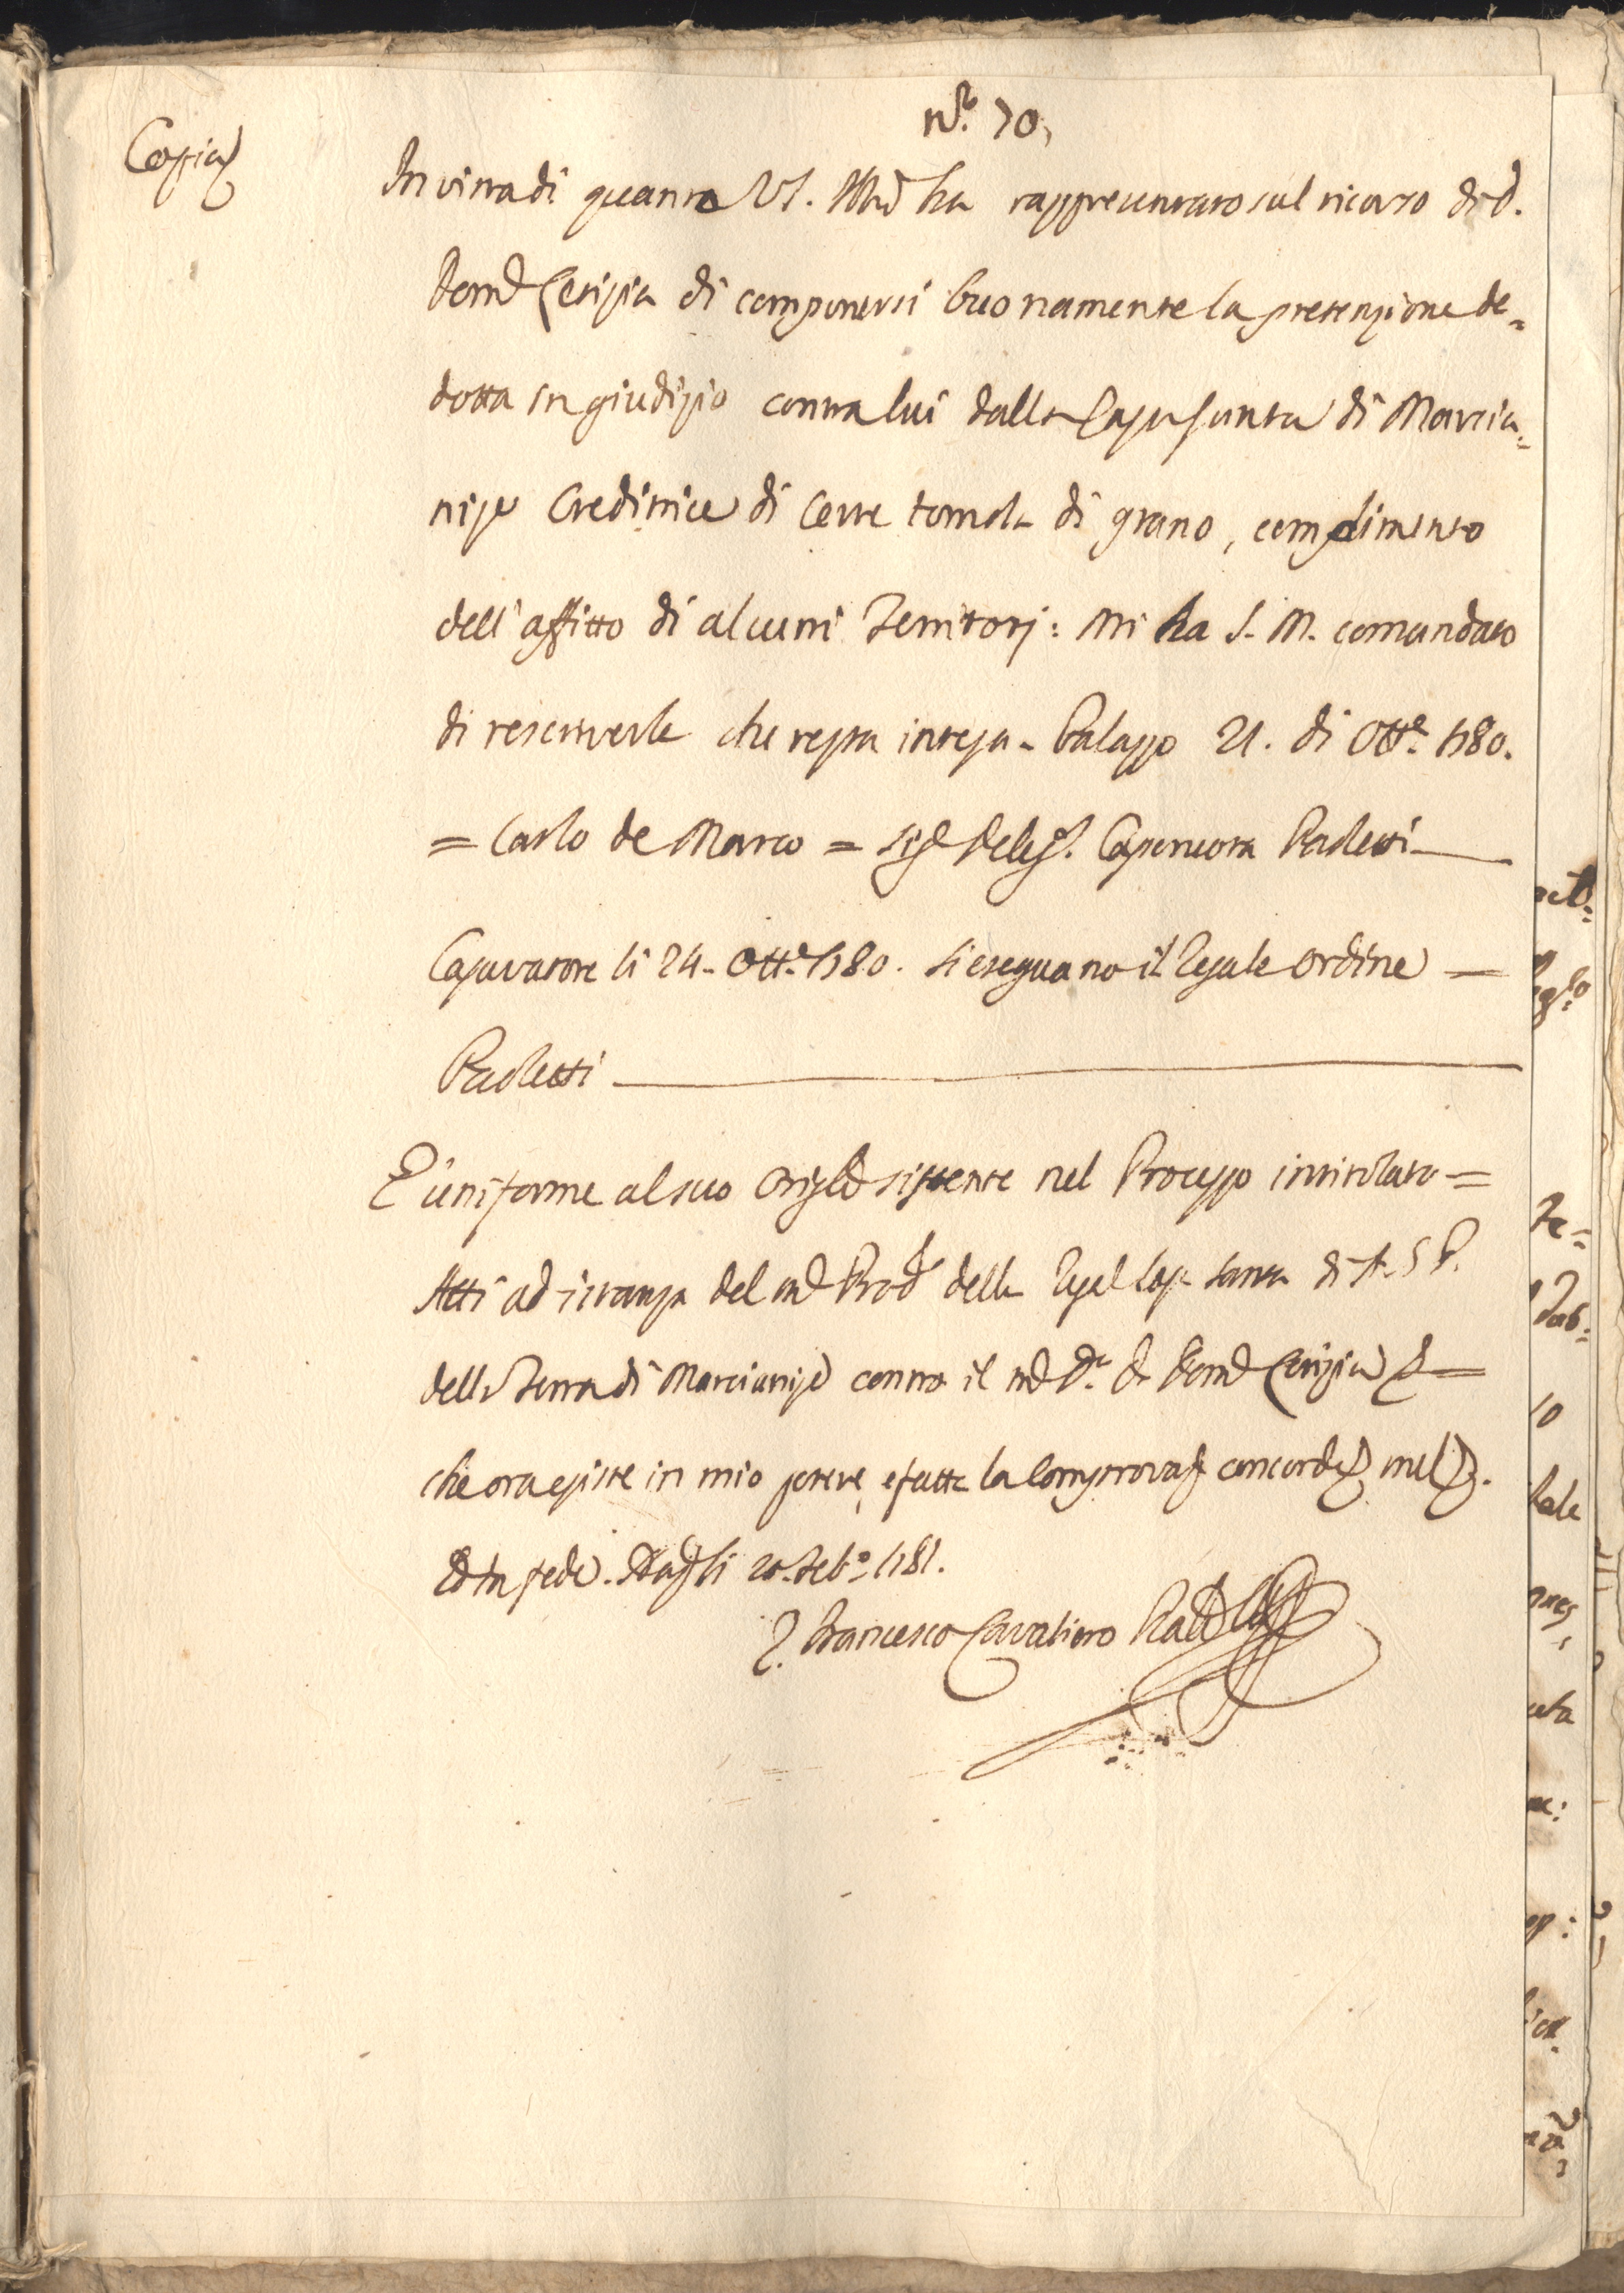 N.º 70,
Copia
In vista di quanto VS. Ill.ma ha rappresentato sul ricorso di d.
Dom.co Cerizia di componersi buonamente la pretenzione de=
dotta in giudizio contra lui dalla Casa Santa di Marcia=
nise Creditrice di certe tomola di grano, complimento
dell'affitto di alcuni Territorj: Mi ha S. M. comandato
di rescriverle che resta intesa. Palazzo 21. di Ott.e 1780.
= Carlo de Marco = Sig.r Deleg.to Caperuota Paoletti
li 24. Ott.e 1780. Si eseguano il Regale ordine =
Paoletti
È uniforme al suo Orig.le sistente nel Processo intitolato =
Atti ad istanza del m.co Proc.re della Regal Casa Santa di A. G. P.
della Terra di Marcianise contro il m.co D.r D. Dom.co Cerizia =
che ora esiste in mio potere, e fatta la comprovaz.e concorda, mel.
Ed in fede. Nap. li 20. Feb.o 1781.
Francesco Cavaliero